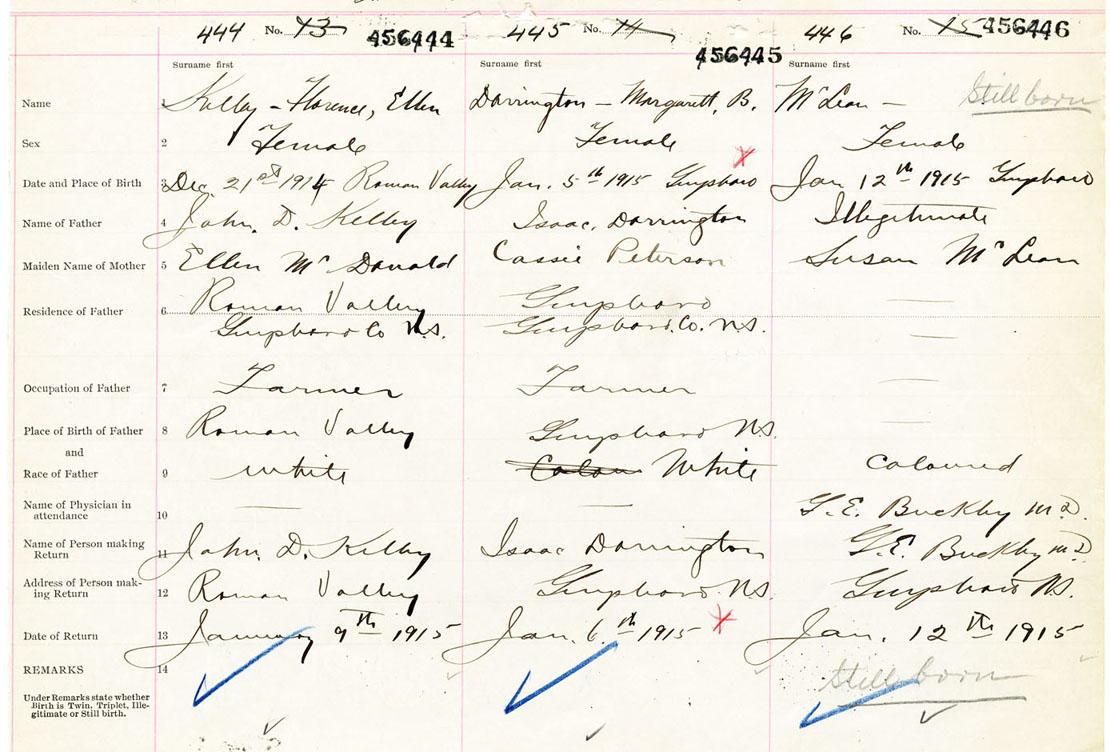 444 No. 13 456444 445 No. 14 456445 446 No. 15 456446
Surname first Surname first Surname first
Name 1 Kelley - Florence, Ellen Darrington - Margarett, B. McLean - Still born
Sex 2 Female Female Female
Date and Place of Birth 3 Dec. 21st 1914 Roman Valley Jan. 5th 1915 Guysboro Jan 12th 1915 Guysboro
Name of Father 4 John. D. Kelley Isaac, Darrington Illegitimate
Maiden Name of Mother 5 Ellen McDonald Cassie Peterson Susan McLean
Residence of Father 6 Roman Valley Guysboro —
Guysboro Co N.S. Guysboro. Co. N.S. —
Occupation of Father 7 Farmer Farmer —
Place of Birth of Father 8 Roman Valley Guysboro N.S. —
and
Race of Father 9 White White Coloured
Name of Physician in
attendance 10 — — G. E. Buckley M.D.
Name of Person making
Return 11 John. D. Kelley Isaac Darrington G. E. Buckley M.D.
Address of Person mak-
ing Return 12 Roman Valley Guysboro. N.S. Guysboro N.S.
Date of Return 13 January 9th 1915 Jan. 6th 1915 Jan. 12th 1915
REMARKS 14 Still born
Under Remarks state whether
Birth is Twin, Triplet, Ille-
gitimate or Still birth.